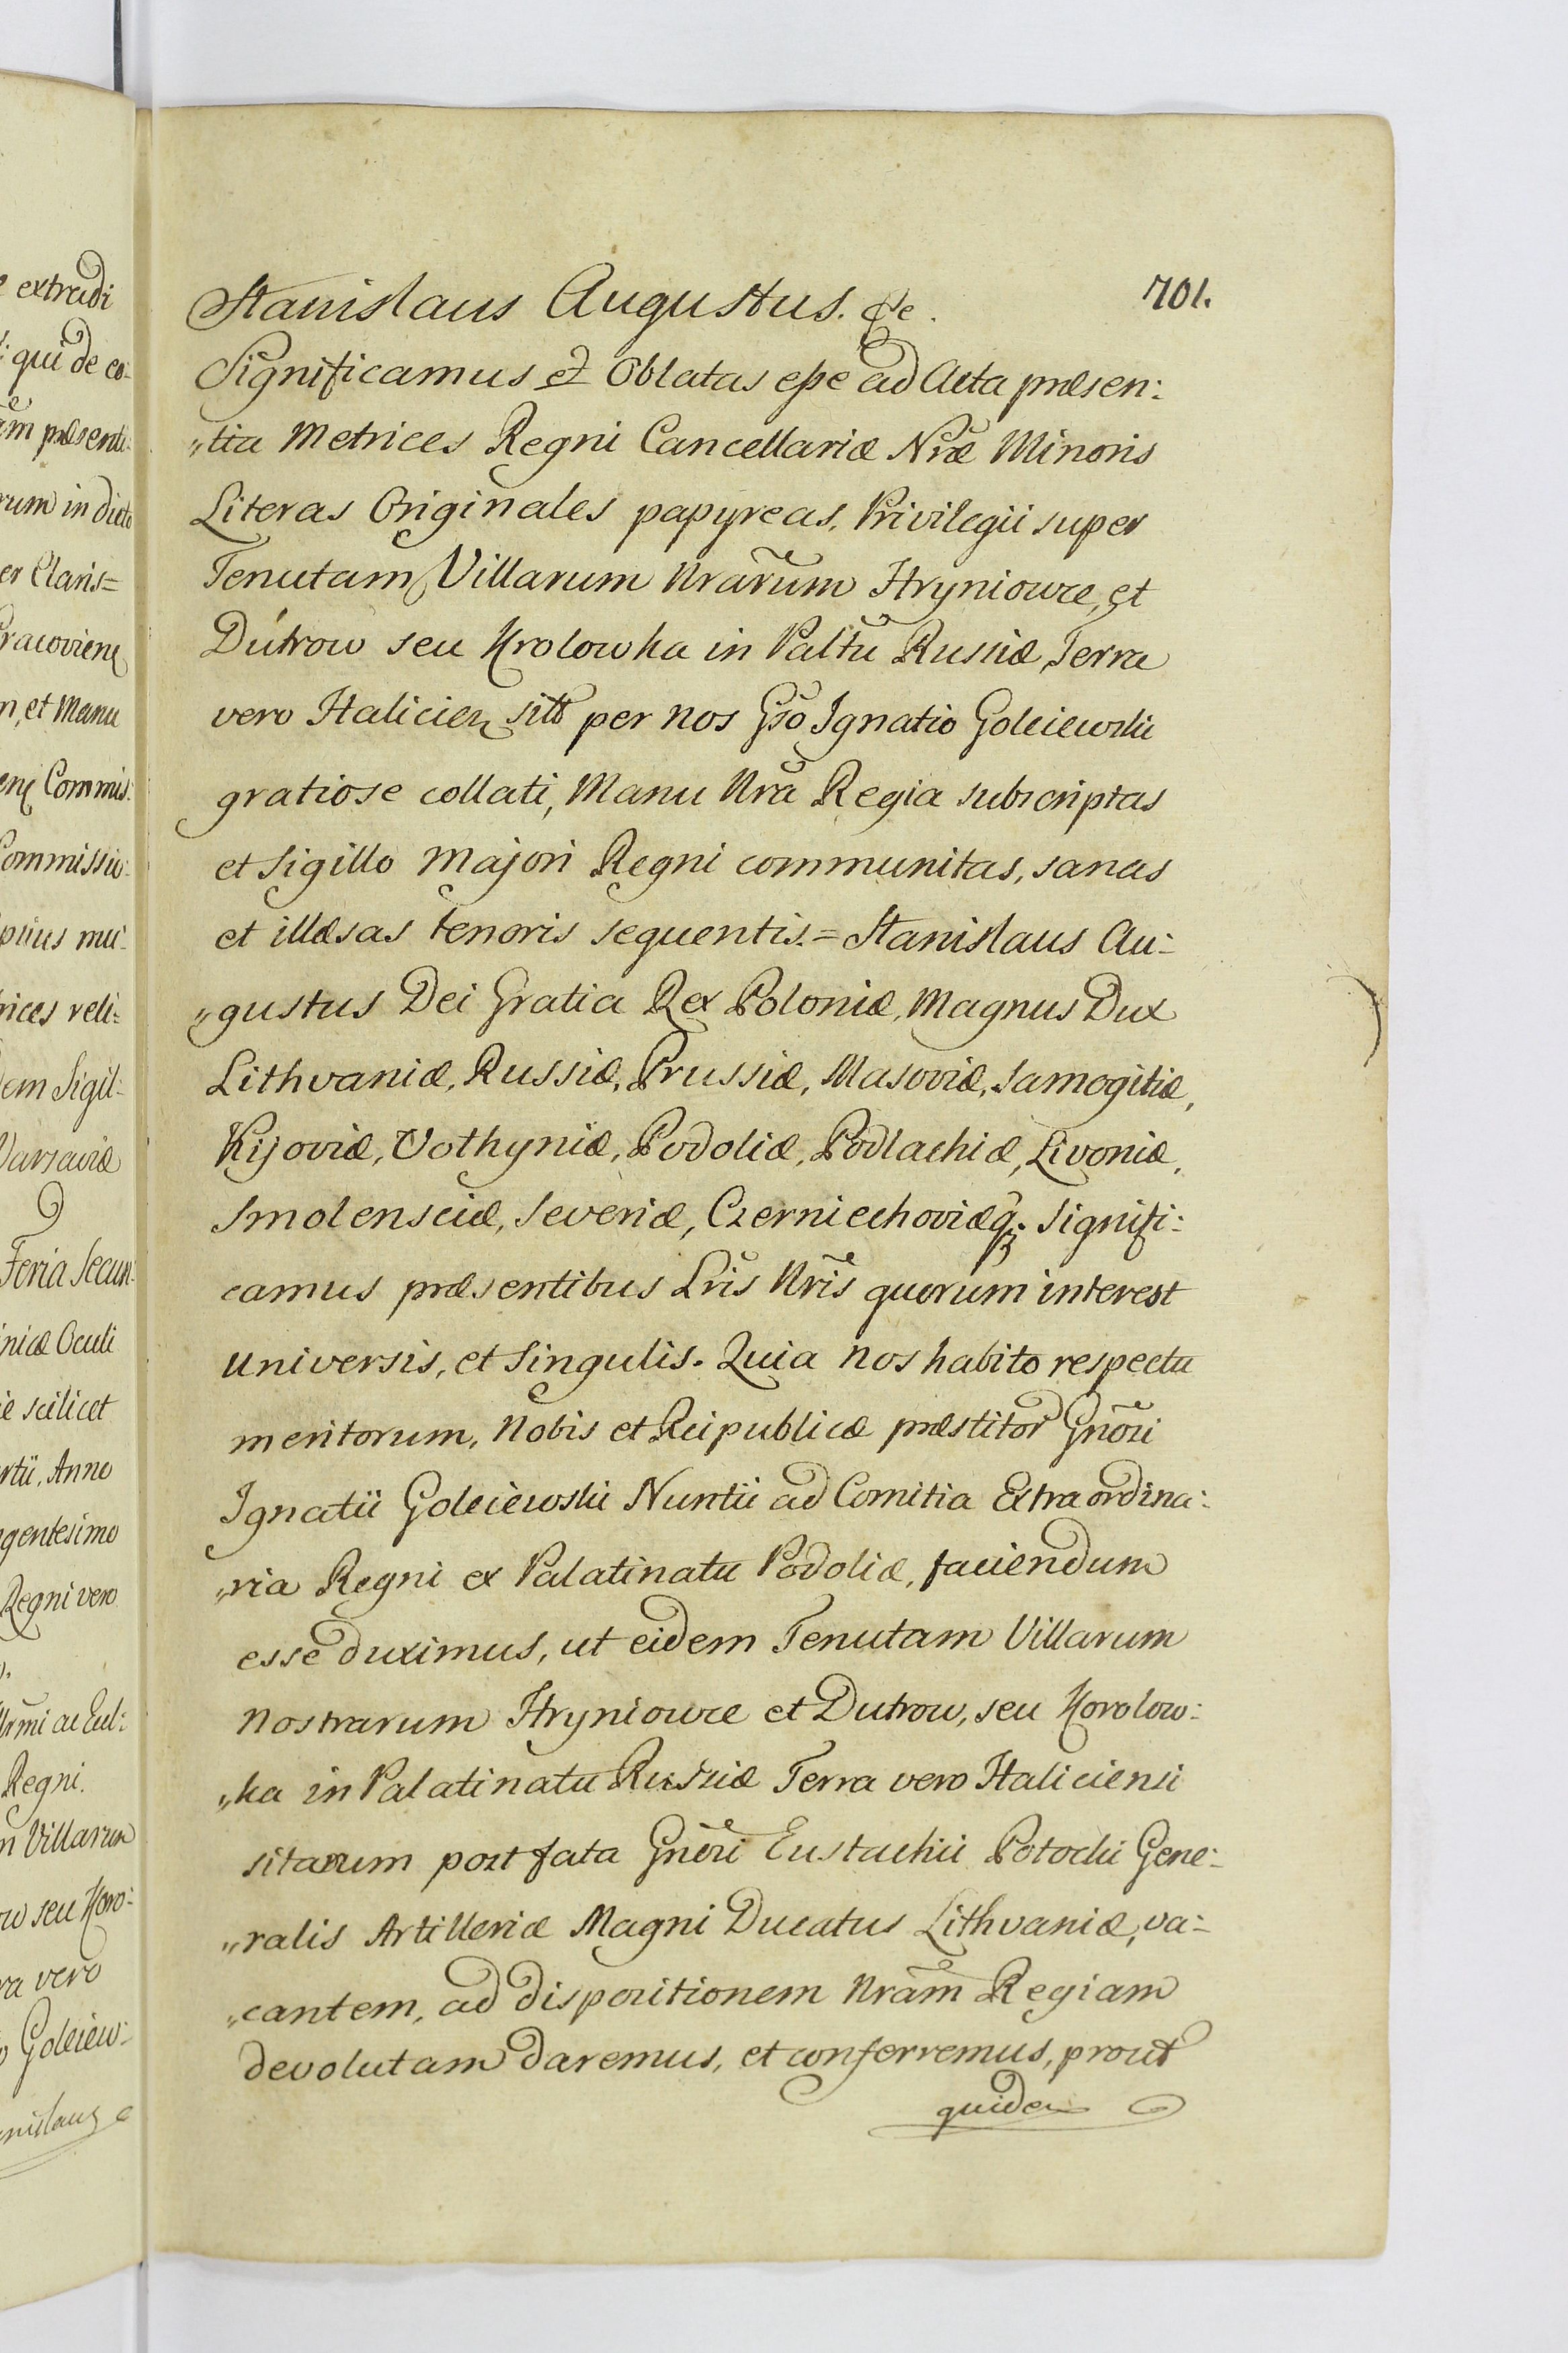 701.
Stanislaus Augustus. &c.
Significamus &c Oblatas esse ad Acta præsen:
„tia Metrices Regni Cancellariæ Nræ Minoris
Literas Originales papyreas, Privilegii super
Tenutam Villarum Nrarum Hryniowce, et
Dutrow seu Krolowka in Paltu Russiæ, Terra
vero Halicien sitt per nos Gso Ignatio Goleiewski
gratiose collati, Manu Nra Regia subscriptas
et Sigillo Majori Regni communitas, sanas
et illæsas tenoris sequentis. = Stanislaus Au:
„gustus Dei Gratia Rex Poloniæ, Magnus Dux
Lithvaniæ, Russiæ, Prussiæ, Masoviæ, Samogitiæ,
Kijoviæ, Volhyniæ, Podoliæ, Podlachiæ, Livoniæ,
Smolensciæ, Severiæ, Czerniechoviæq3. Signifi:
camus præsentibus Lris Nris quorum interest
universis, et singulis. Quia nos habito respectu
meritorum, Nobis et Reipublicæ præstitor Gnosi
Ignatii Goleiewski Nuntii ad Comitia Extraordina:
„ria Regni ex Palatinatu Podoliæ, faciendum
esse duximus, ut eidem Tenutam Villarum
Nostrarum Hryniowce et Dutrow, seu Korolow:
„ka in Palatinatu Russiæ Terra vero Haliciensi
sitarum post fata Gnosi Eustachii Potocki Gene:
„ralis Artilleriæ Magni Ducatus Lithvaniæ, va:
„cantem, ad dispositionem Nram Regiam
devolutam daremus, et conferremus, prout
quidem
extradi
qui de co:
præsenti:
rum in dicto
er Claris=
racovien
n, et Manu
Commis:
Commissio:
mu:
rices reli:
dem Sigil:
Varsaviæ
Feria Secun:
inicæ Oculi
scilicet
rtii, Anno
gentesimo
Regni vero
Regni.
m Villarum
ow seu Koro:
ra vero
Goleiew: